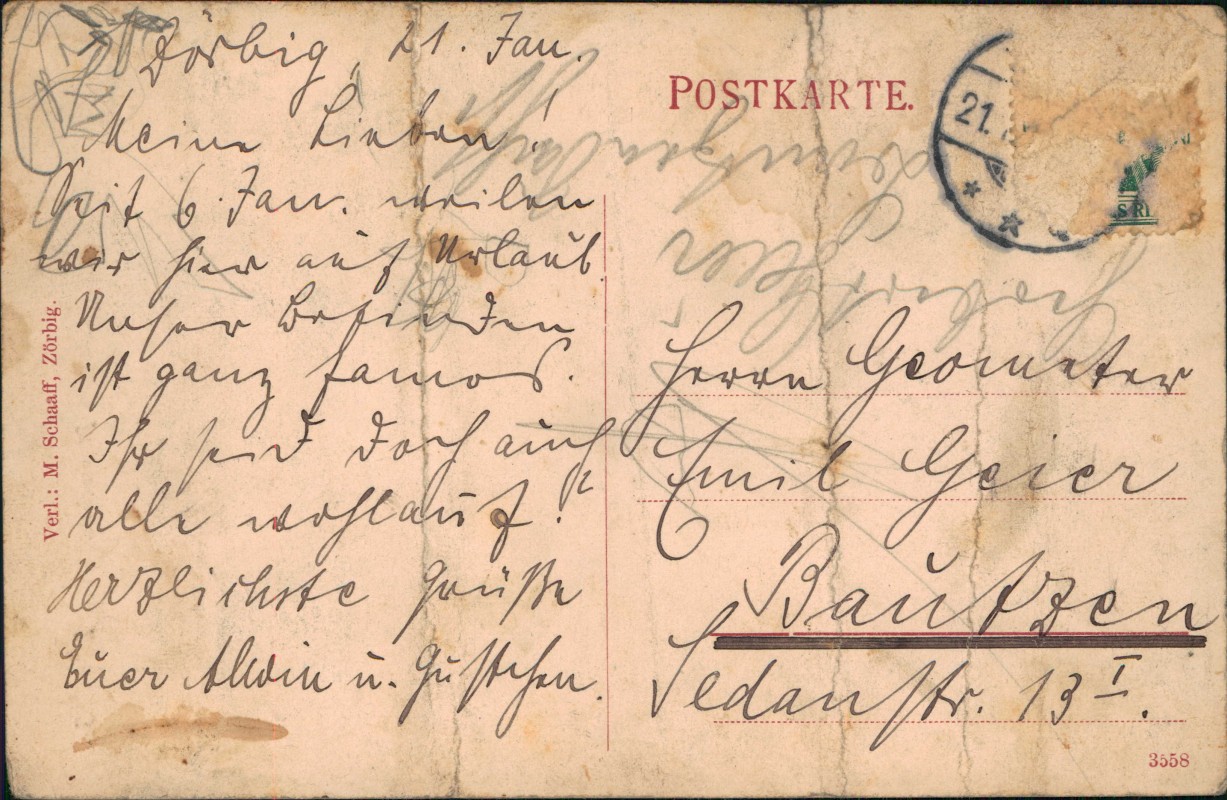 Zörbig, 21. Jan.
Meine Lieben!
Seit 6. Jan. weilen
wir hier auf Urlaub.
Unser Befinden
ist ganz famos.
Ihr seid doch auch
alle wohlauf?
Herzlichste Grüße
Euer Alwin u. Gustchen.
Verl.: M. Schaaff, Zörbig.
POSTKARTE.
21.
Herrn Geometer
Emil Geier
Bautzen
Sedanstr. 13 I.
3558